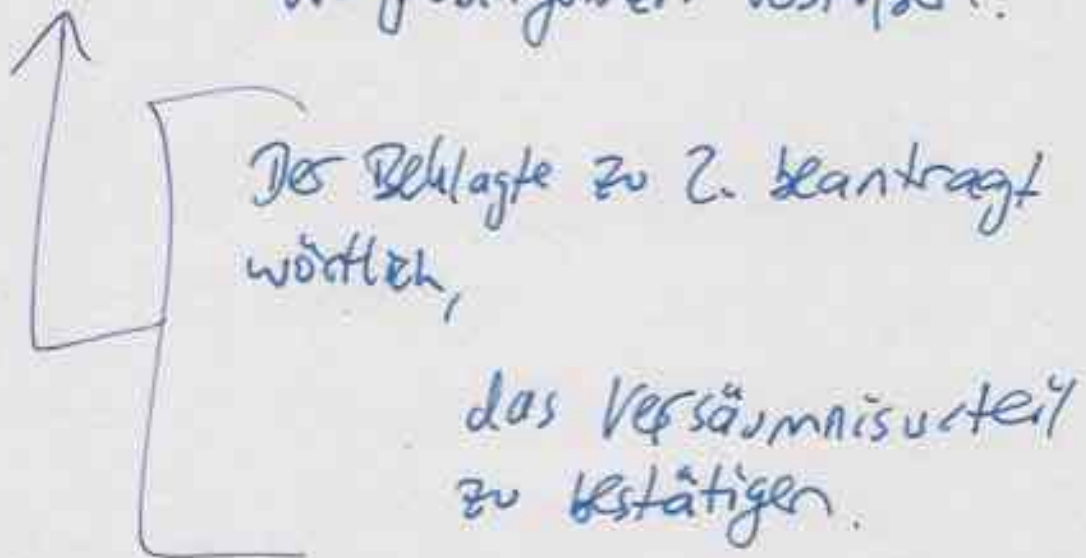 Der Beklagte zu 2. beantragt
wörtlich,
das Versäumnisurteil
zu bestätigen.